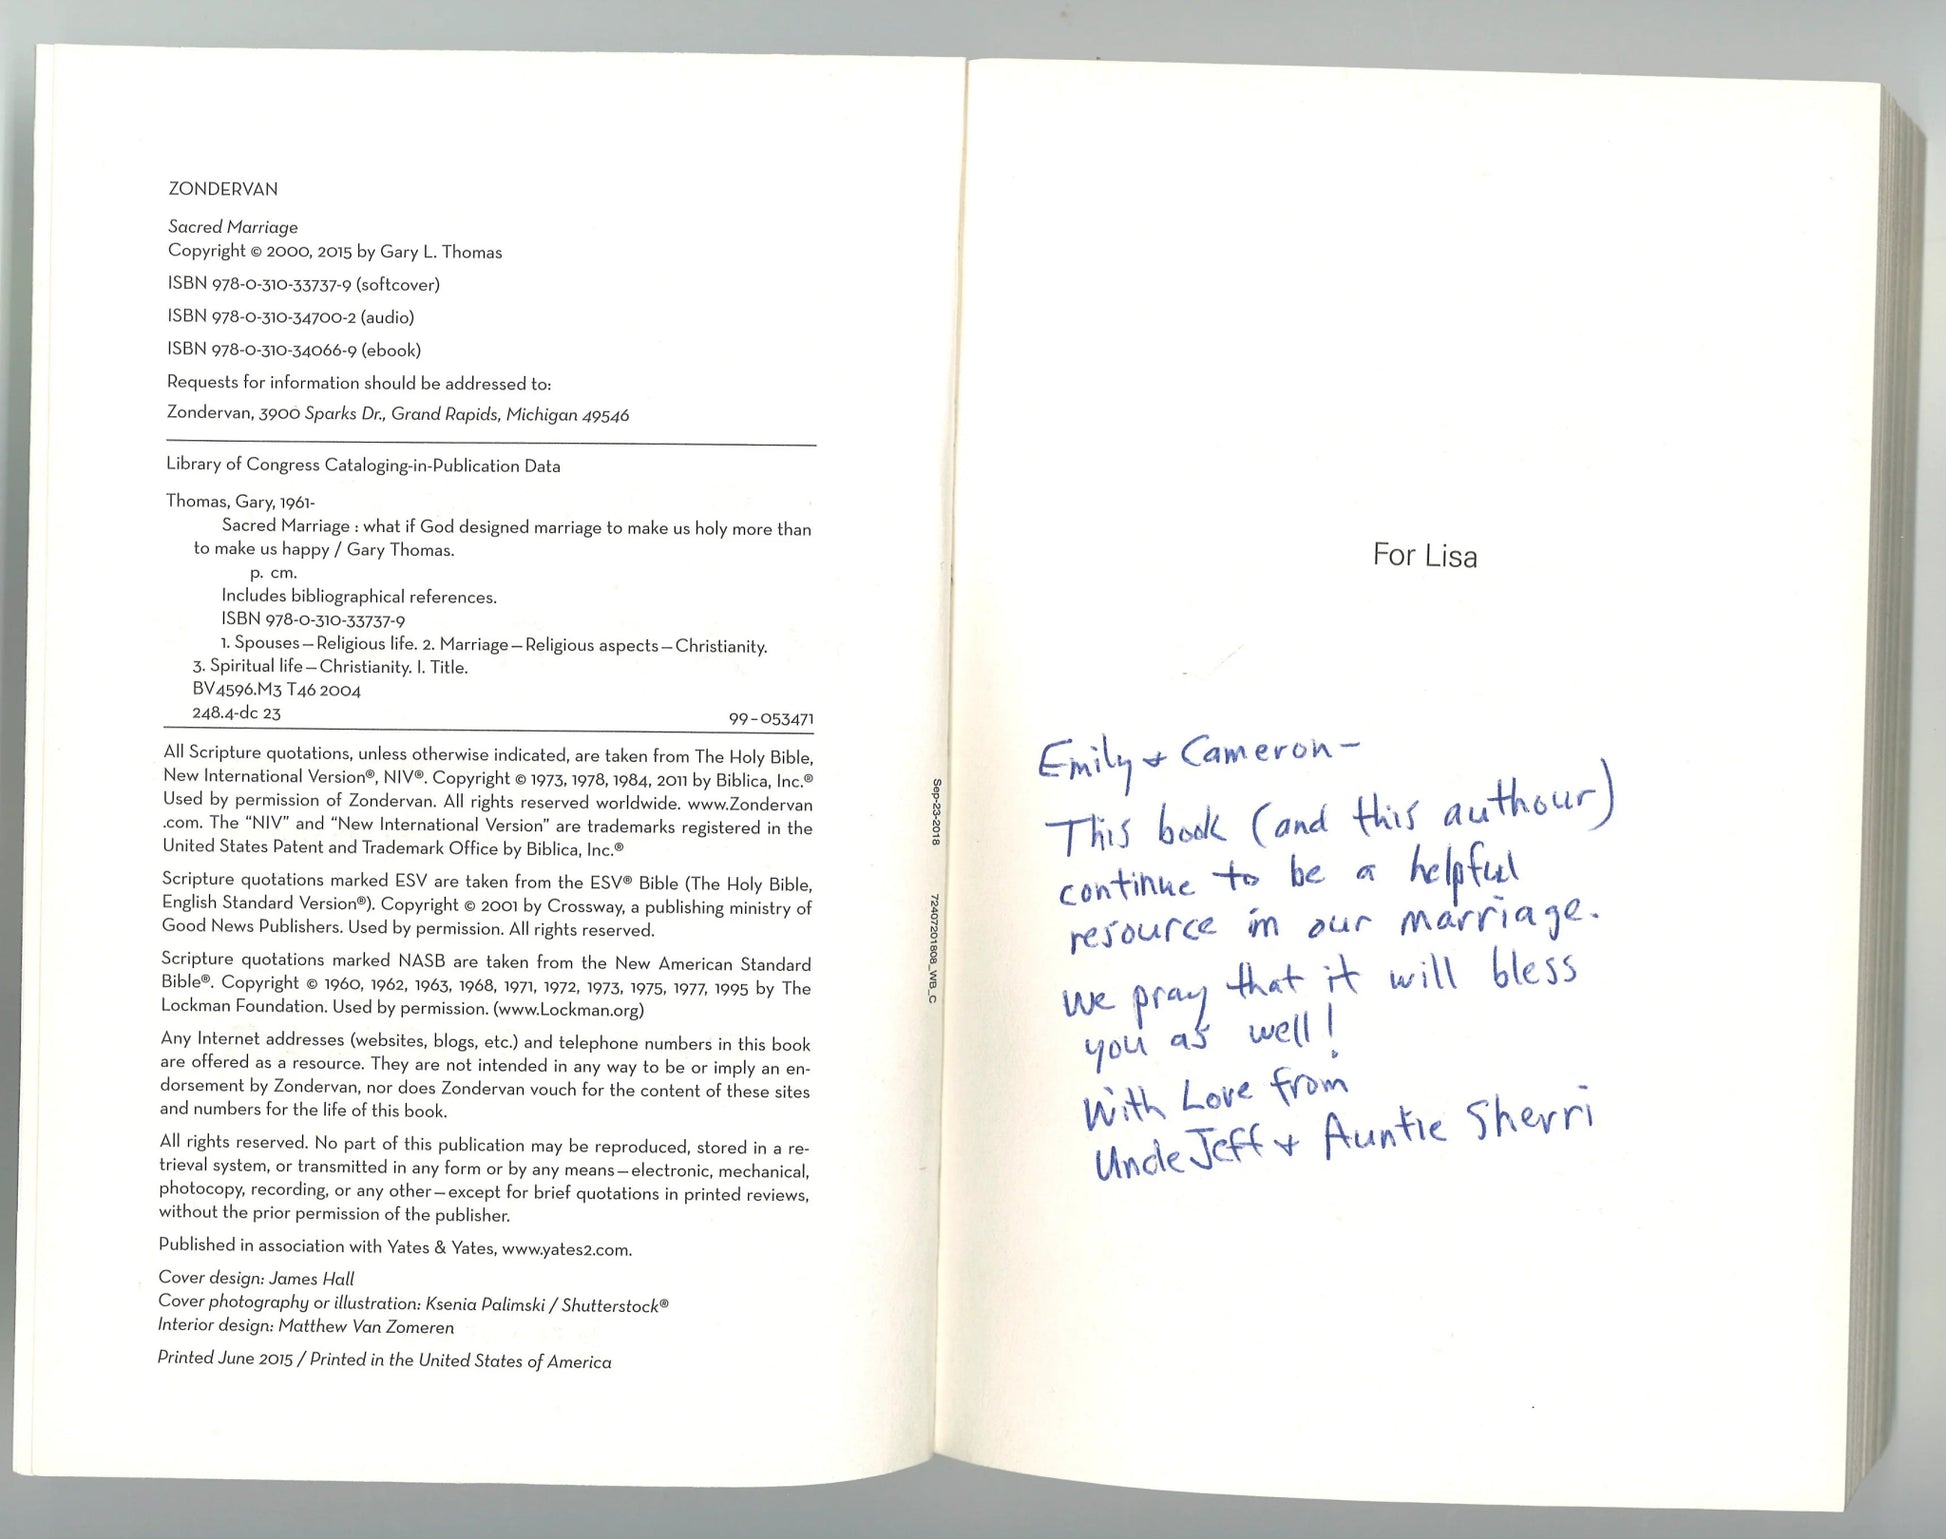 ZONDERVAN
Sacred Marriage
Copyright © 2000, 2015 by Gary L. Thomas
ISBN 978-0-310-33737-9 (softcover)
ISBN 978-0-310-34700-2 (audio)
ISBN 978-0-310-34066-9 (ebook)
Requests for information should be addressed to:
Zondervan, 3900 Sparks Dr., Grand Rapids, Michigan 49546
Library of Congress Cataloging-in-Publication Data
Thomas, Gary, 1961-
Sacred Marriage : what if God designed marriage to make us holy more than
to make us happy / Gary Thomas.
p. cm.
Includes bibliographical references.
ISBN 978-0-310-33737-9
1. Spouses—Religious life. 2. Marriage—Religious aspects—Christianity.
3. Spiritual life—Christianity. I. Title.
BV4596.M3 T46 2004
248.4-dc 23 99-053471
All Scripture quotations, unless otherwise indicated, are taken from The Holy Bible,
New International Version®, NIV®. Copyright © 1973, 1978, 1984, 2011 by Biblica, Inc.®
Used by permission of Zondervan. All rights reserved worldwide. www.Zondervan
.com. The “NIV” and “New International Version” are trademarks registered in the
United States Patent and Trademark Office by Biblica, Inc.®
Scripture quotations marked ESV are taken from the ESV® Bible (The Holy Bible,
English Standard Version®). Copyright © 2001 by Crossway, a publishing ministry of
Good News Publishers. Used by permission. All rights reserved.
Scripture quotations marked NASB are taken from the New American Standard
Bible®. Copyright © 1960, 1962, 1963, 1968, 1971, 1972, 1973, 1975, 1977, 1995 by The
Lockman Foundation. Used by permission. (www.Lockman.org)
Any Internet addresses (websites, blogs, etc.) and telephone numbers in this book
are offered as a resource. They are not intended in any way to be or imply an en-
dorsement by Zondervan, nor does Zondervan vouch for the content of these sites
and numbers for the life of this book.
All rights reserved. No part of this publication may be reproduced, stored in a re-
trieval system, or transmitted in any form or by any means—electronic, mechanical,
photocopy, recording, or any other—except for brief quotations in printed reviews,
without the prior permission of the publisher.
Published in association with Yates & Yates, www.yates2.com.
Cover design: James Hall
Cover photography or illustration: Ksenia Palimski / Shutterstock®
Interior design: Matthew Van Zomeren
Printed June 2015 / Printed in the United States of America
Sep-23-2018 7240720180​8_WB_C
For Lisa
Emily + Cameron-
This book (and this authour)
continue to be a helpful
resource in our marriage.
We pray that it will bless
you as well!
With Love from
Uncle Jeff + Auntie Sherri